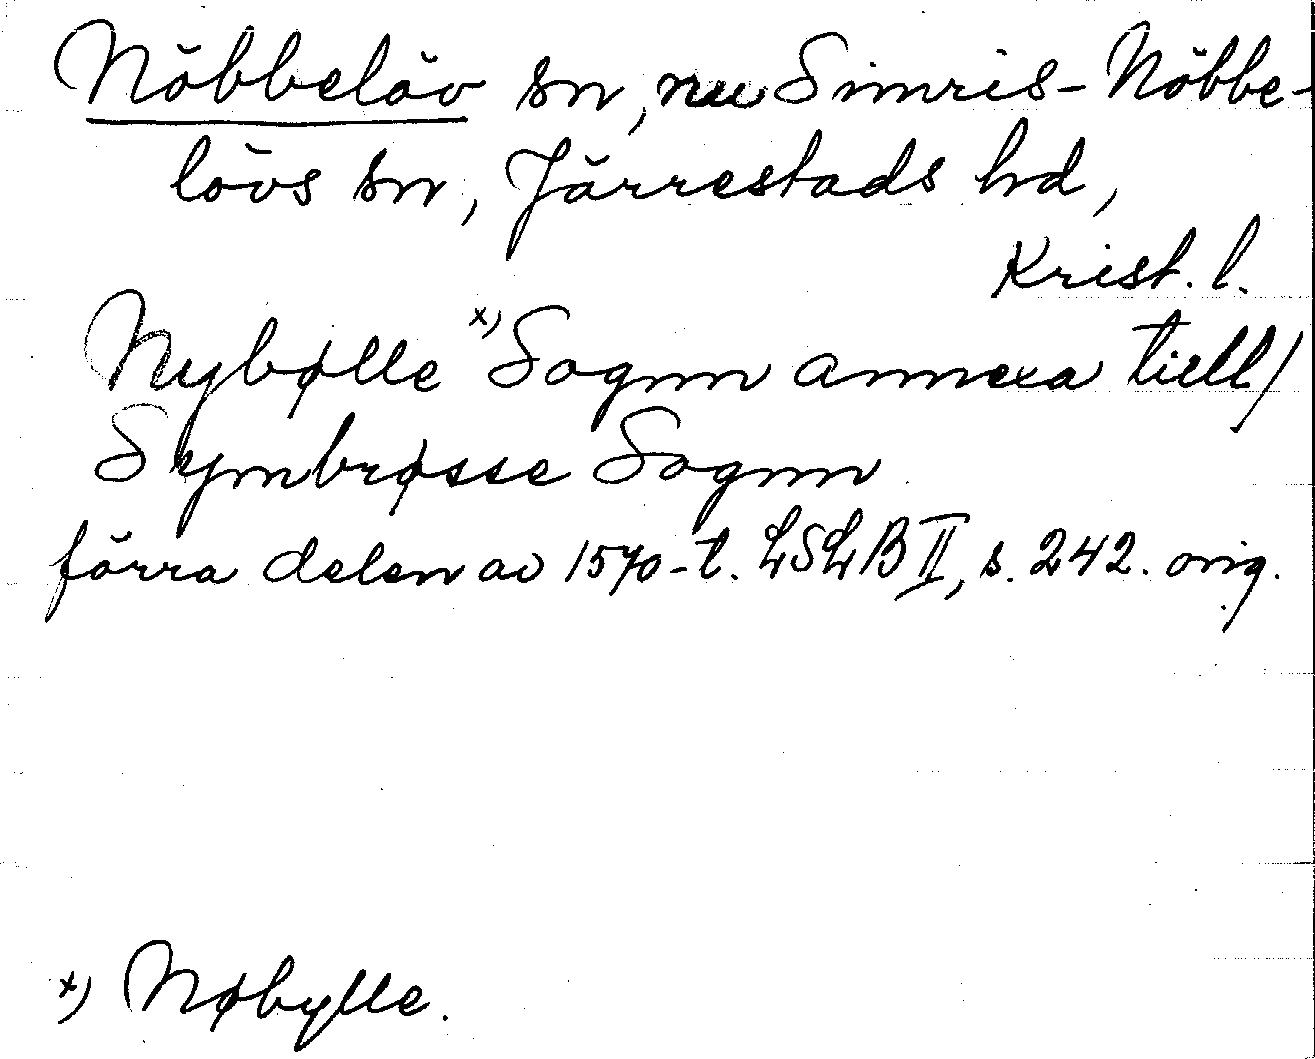 Nöbbelöv sn, nu Simris-Nöbbe-
lövs sn, Järrestads hd,
Krist. l.
Nybølle x) Sognn annexa tiell/
Symbrøsse Sognn
förra delen av 1570-t. LSLB II, s. 242. orig.
x) Nøbylle.